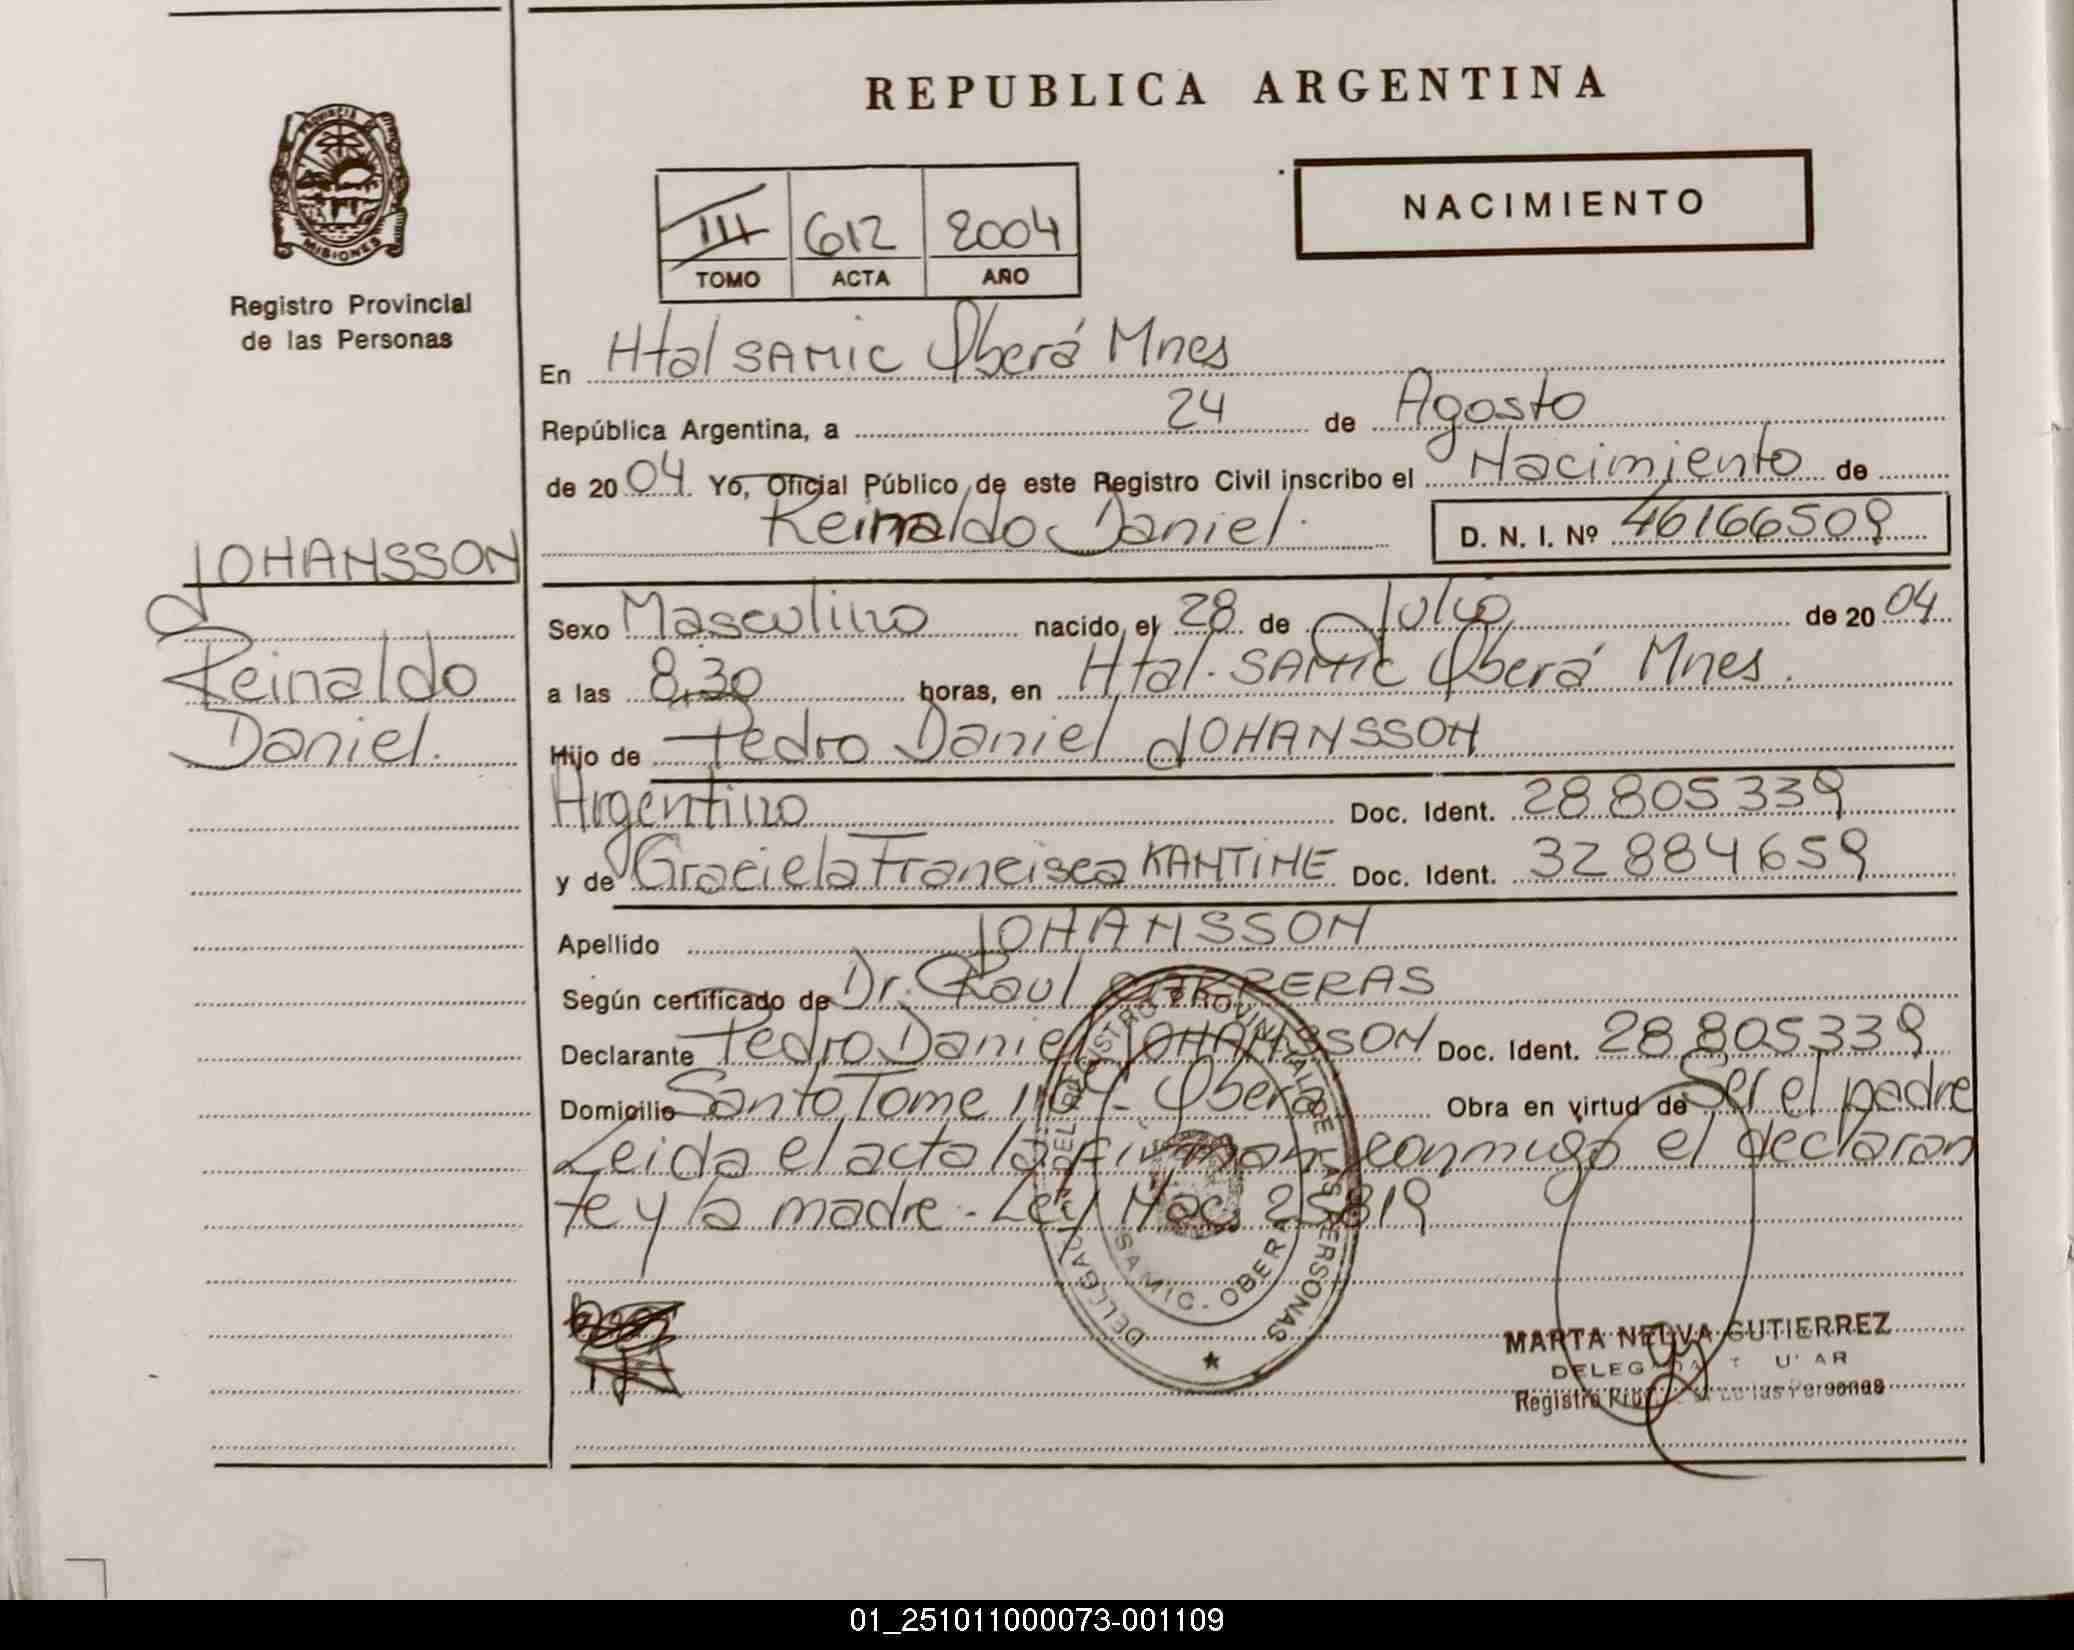 REPUBLICA ARGENTINA
NACIMIENTO
III 612 2004
TOMO ACTA AÑO
PROVINCIA DE
MISIONES
Registro Provincial
de las Personas
JOHANSSON
Reinaldo
Daniel.
En Htal SAMIC Oberá Mnes
República Argentina, a 24 de Agosto
de 2004 Yo, Oficial Público de este Registro Civil inscribo el Nacimiento de
Reinaldo Daniel. D. N. I. Nº 46166509
Sexo Masculino nacido el 28 de Julio de 2004
a las 8,30 horas, en Htal. SAMIC Oberá Mnes.
Hijo de Pedro Daniel JOHANSSON
Argentino Doc. Ident. 28.805.339
y de Graciela Francisca KANTINE Doc. Ident. 32884659
Apellido JOHANSSON
Según certificado de Dr. Raul CARRERAS
Declarante Pedro Daniel JOHANSSON Doc. Ident. 28.805339
Domicilio Santo Tome - Oberá Obra en virtud de Ser el padre
Leida el acta la firman conmigo el declaran
te y la madre - Ley Nac. 25819
DELEGACION DEL REGISTRO PROVINCIAL DE LAS PERSONAS
SAMIC - OBERA
MARTA NELVA GUTIERREZ
DELEGADA TITULAR
Registro Provincial de las Personas
01_251011000073-001109